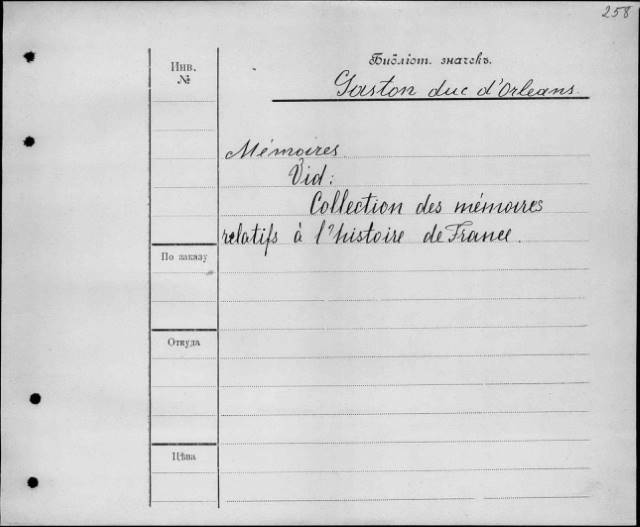 258
Библіот. значекъ.
Gaston duc d'Orleans.
Инв.
№
Mémoires.
Vid:
Collection des mémoires
relatifs à l'histoire de France.
По заказу
Откуда
Цѣна